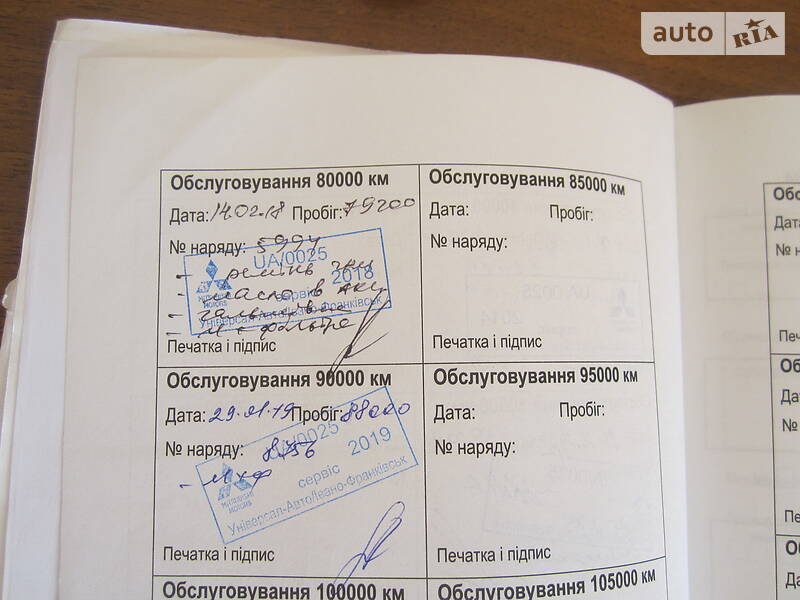 auto RIA
Обслуговування 80000 км
Дата: 14.02.18 Пробіг: 79200
№ наряду: 5994
UA/0025
- ремінь
2018
- масло в АКП
сервіс
MITSUBISHI MOTORS
Універсал-Авто/Івано-Франківськ
- М + фильтра
Печатка і підпис
Обслуговування 85000 км
Дата: Пробіг:
№ наряду:
Обслуговування 90000 км
Дата: 29.01.19 Пробіг: 88000
№ наряду: 8756
UA/0025
2019
- М+ф
сервіс
MITSUBISHI MOTORS
Універсал-Авто/Івано-Франківськ
Печатка і підпис
Печатка і підпис
Обслуговування 95000 км
Дата: Пробіг:
№ наряду:
Печатка і підпис
Обслуговування 100000 км
Обслуговування 105000 км